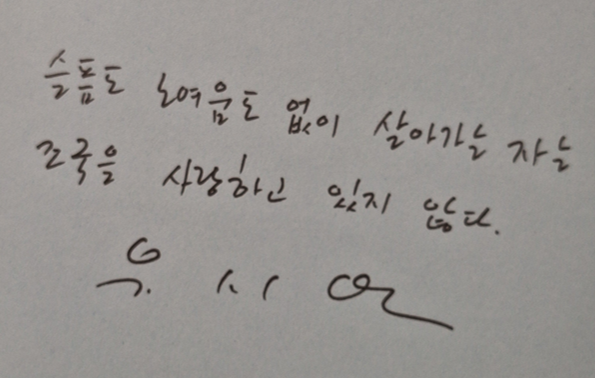 슬픔도 노여움도 없이 살아가는 자는
조국을 사랑하고 있지 않다.
유 시 민